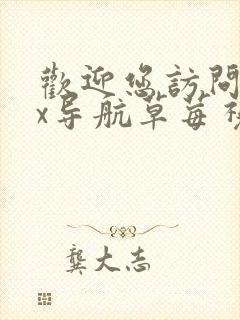 歡迎您訪問
x导航草莓视
龔大志